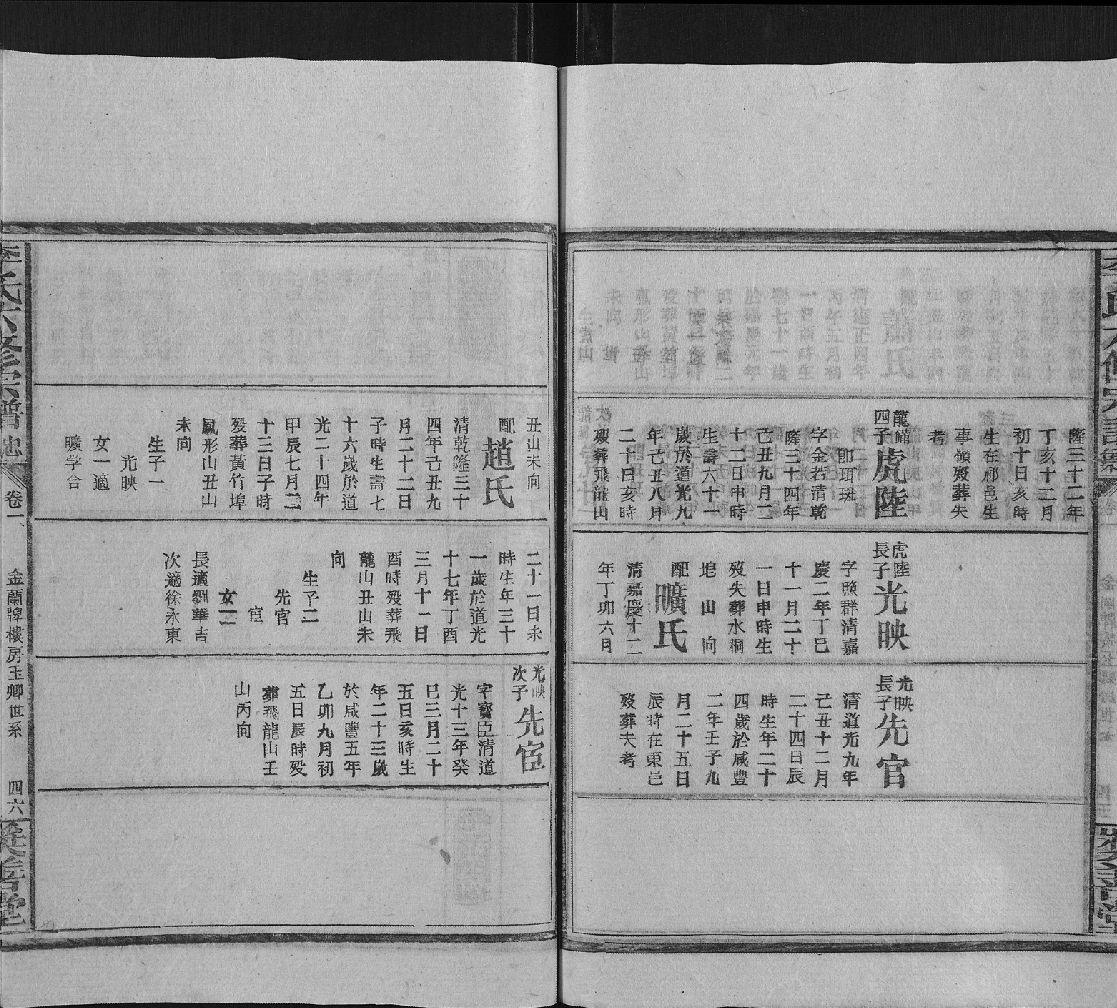 隆三十二年
丁亥十二月
初十日亥時
生在邢邑生
事領殁葬失
考
龍
四子虎陞
即項珠
字金若清乾
隆三十四年
己丑九月二
十二日申時
生壽六十一
歲於道光九
年己丑八月
二十日亥時
殁葬飛龍山
虎陞
長子光映
字照群清嘉
慶二年丁巳
十一月二十
一日申時生
殁失葬水桐
山向
配
曠氏
清嘉慶十二
年丁卯六日
光映
長子先官
清道光九年
己丑十二月
二十四日辰
時生年二十
四歲於咸豐
二年壬子九
月二十五日
辰時在東邑
殁葬失考
丑山未向
配
趙氏
清乾隆三十
四年己丑九
月二十二日
子時生壽七
十六歲於道
光二十四年
甲辰七月二
十三日子時
殁葬黃竹埠
鼠形山丑山
未向
生子一
光映
女一適
曠学合
二十一日未
時生年三十
一歲於道光
十七年丁酉
三月十一日
酉時殁葬飛
龍山丑山未
向
生子二
先官
宦
女二
長適劉華吉
次適徐永東
光映
次子先宦
字寶臣清道
光十三年癸
巳三月二十
五日亥時生
年二十三歲
於咸豐五年
乙卯九月初
五日辰時殁
葬飛龍山壬
山丙向
李氏六修宗譜 卷二 金蘭牌樓房玉卿世系 四六